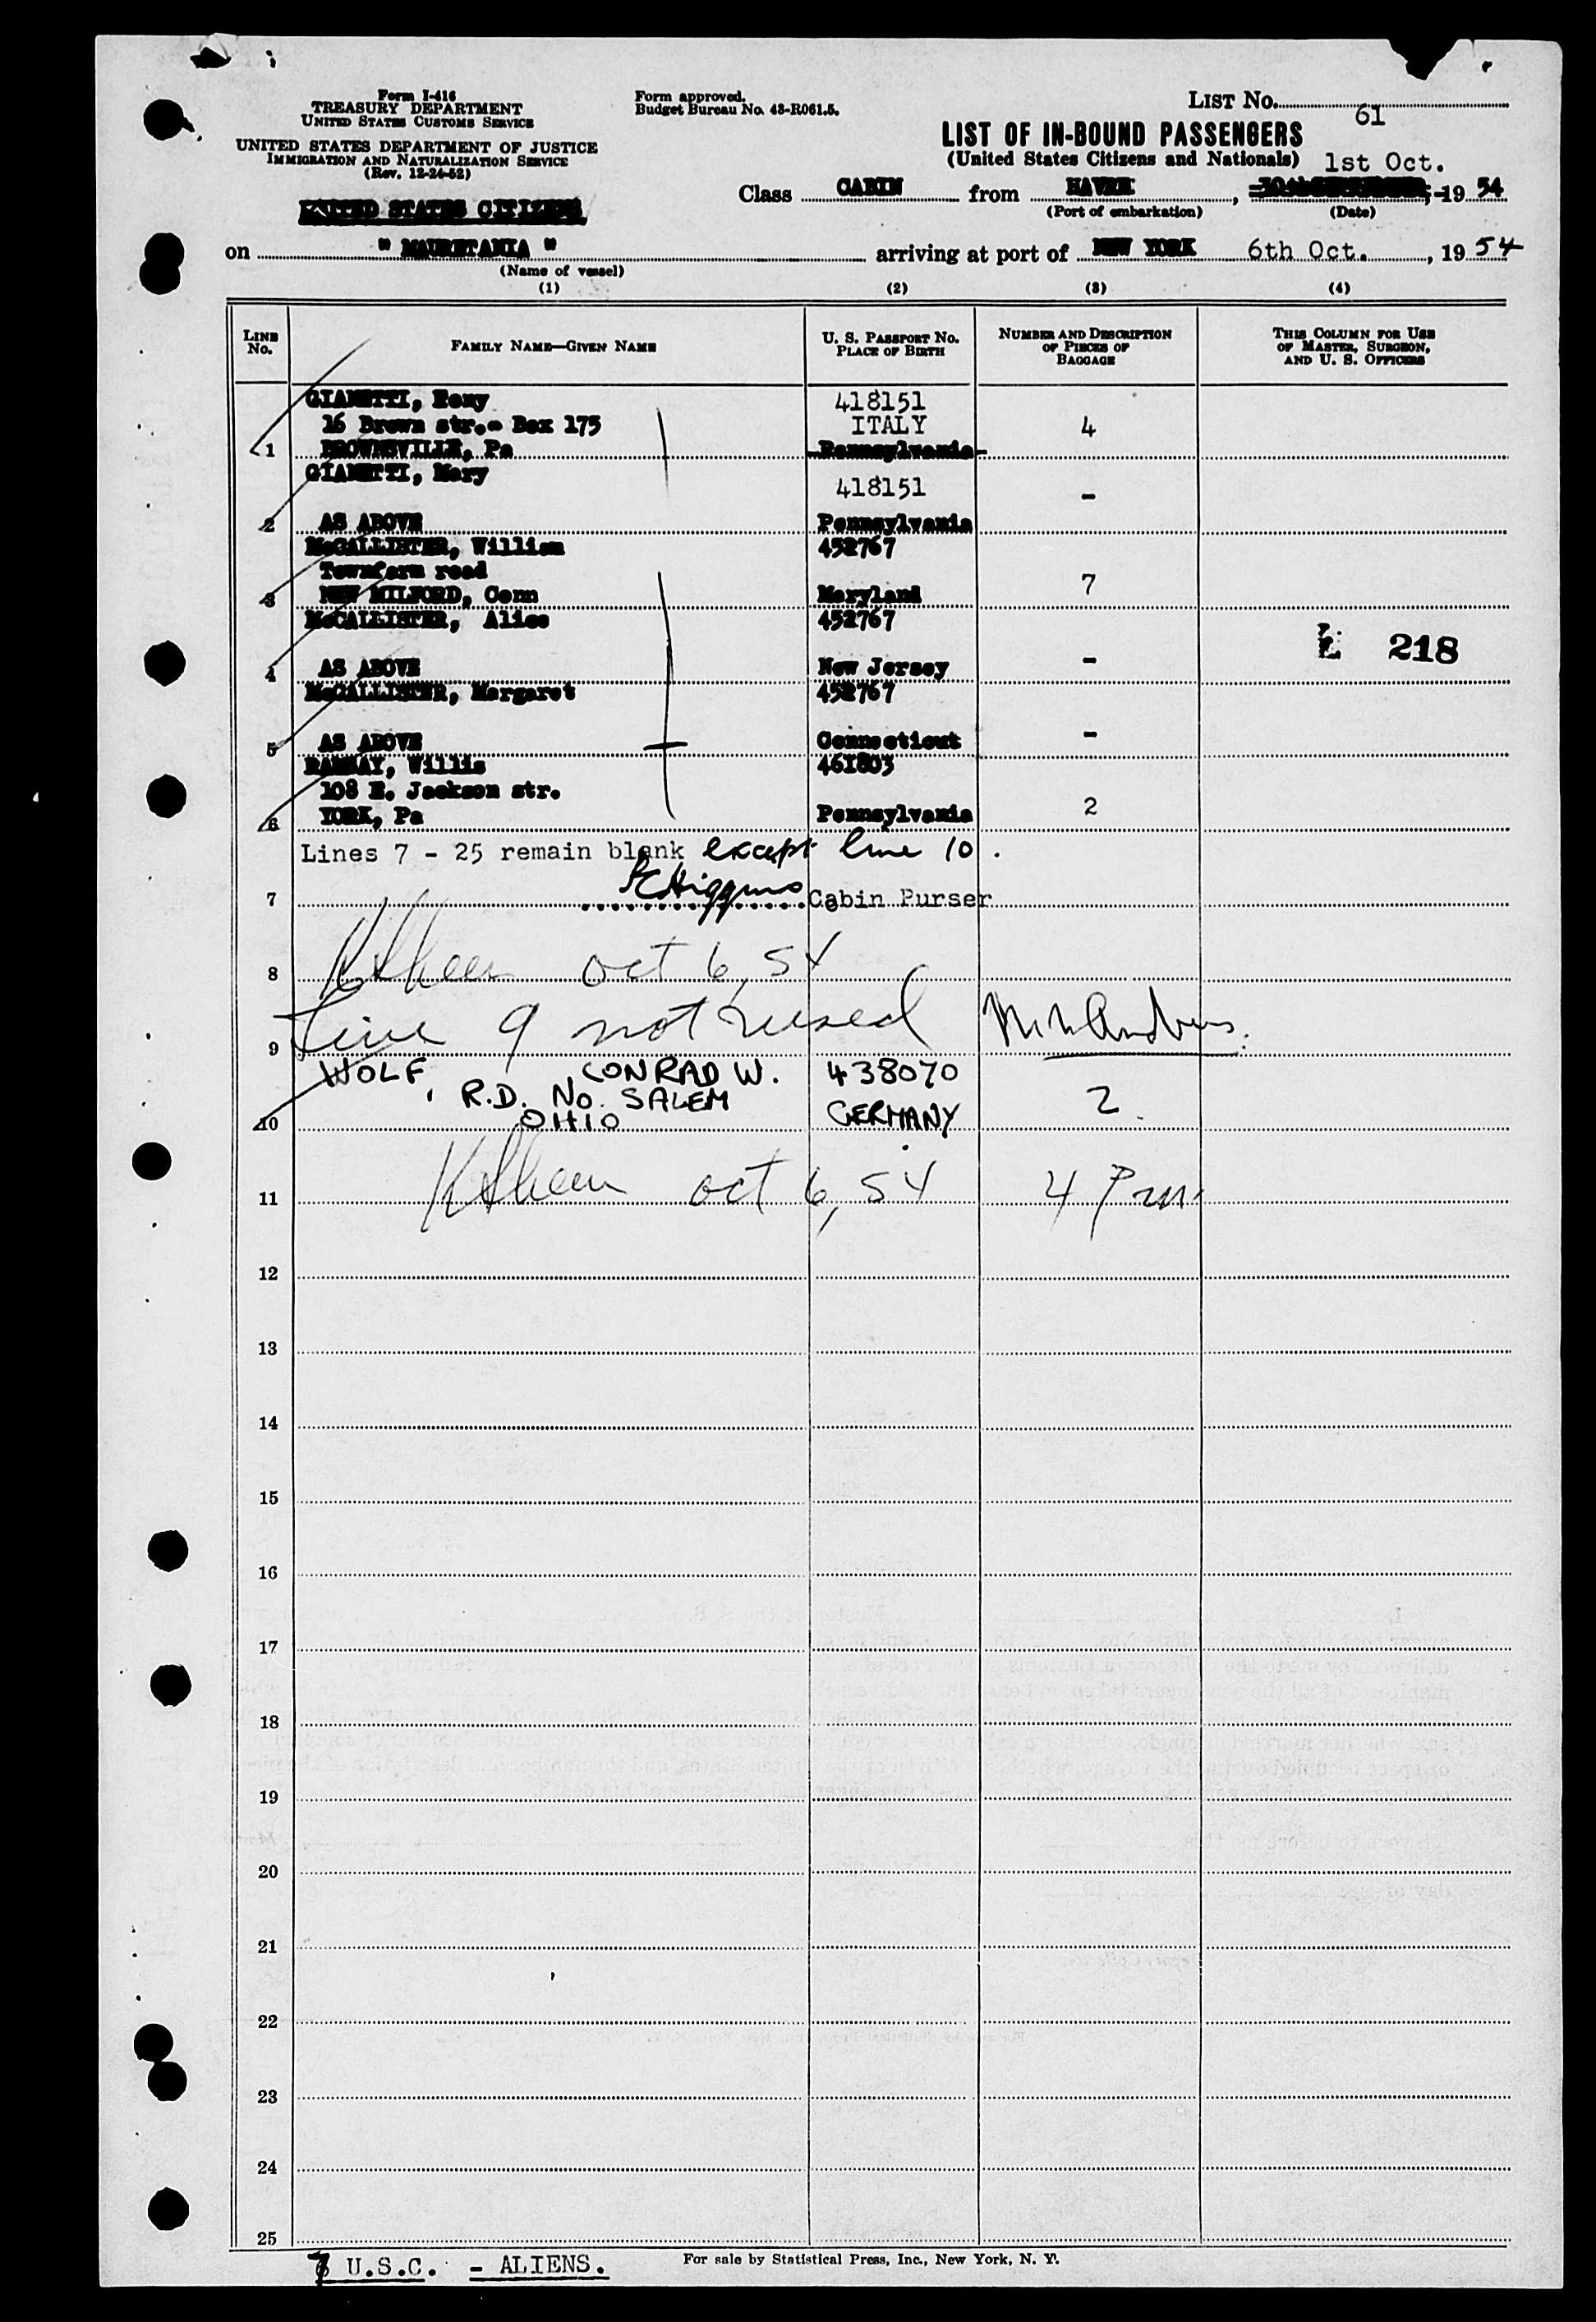 Form I-416
TREASURY DEPARTMENT
UNITED STATES CUSTOMS SERVICE
UNITED STATES DEPARTMENT OF JUSTICE
IMMIGRATION AND NATURALIZATION SERVICE
(Rev. 12-24-52)
Form approved.
Budget Bureau No. 43-R061.5.
LIST No. 61
LIST OF IN-BOUND PASSENGERS
(United States Citizens and Nationals)
1st Oct.
UNITED STATES CITIZENS
Class CABIN from HAVRE, 1954
(Port of embarkation) (Date)
on " MAURETANIA " arriving at port of NEW YORK 6th Oct., 1954
(Name of vessel)
(1) (2) (3) (4)
LINE No. FAMILY NAME—GIVEN NAME U. S. PASSPORT No. PLACE OF BIRTH NUMBER AND DESCRIPTION OF PIECES OF BAGGAGE THIS COLUMN FOR USE OF MASTER, SURGEON, AND U. S. OFFICERS
GIANETTI, Remy 418151
16 Brown str.- Box 175 ITALY 4
1 BROWNSVILLE, Pa Pennsylvania
GIANETTI, Mary 418151 -
2 AS ABOVE Pennsylvania
McCALLISTER, William 452767
Townfarm road 7
3 NEW MILFORD, Conn Maryland
McCALLISTER, Alice 452767
218
4 AS ABOVE New Jersey -
McCALLISTER, Margaret 452767
5 AS ABOVE Connecticut -
RAMSAY, Willis 461803
108 E. Jackson str.
6 YORK, Pa Pennsylvania 2
Lines 7 - 25 remain blank except line 10.
7 Higgins Cabin Purser
8 oct 6, 54
9 Line 9 not used
WOLF, CONRAD W. 438070
R.D. No. SALEM 2
10 OHIO GERMANY
11 oct 6, 54 4 Pm.
12
13
14
15
16
17
18
19
20
21
22
23
24
25
7 U.S.C. - ALIENS.
For sale by Statistical Press, Inc., New York, N. Y.